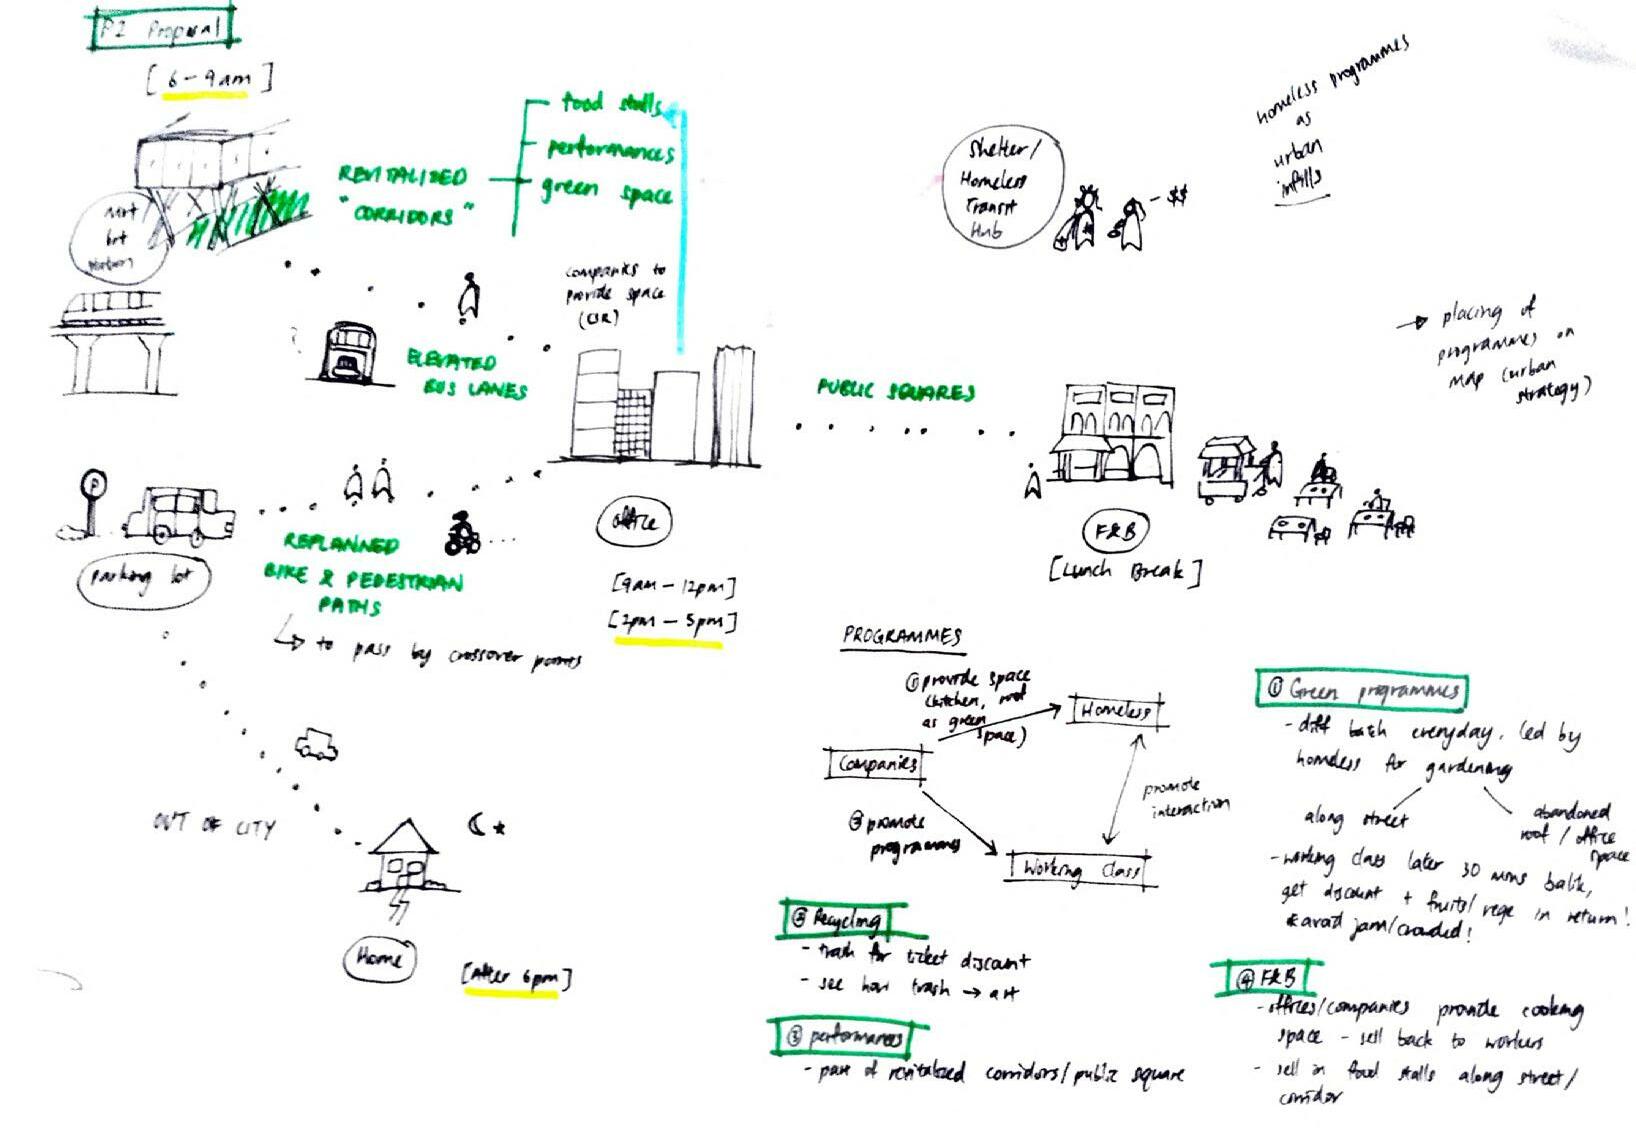 P2 Proposal
[ 6 - 9am ]
food stalls
performances
green space
REVITALIZED
"CORRIDORS"
mrt
lrt
station
companies to
provide space
(CSR)
ELEVATED
BUS LANES
Shelter/
Homeless
Transit
Hub
- $$
homeless programmes
as
urban
infills
→ placing of
programmes on
map (urban
strategy)
PUBLIC SQUARES
P
parking lot
REPLANNED
BIKE & PEDESTRIAN
PATHS
↳ to pass by crossover points
office
[9am - 12pm]
[2pm - 5pm]
F&B
[Lunch Break]
OUT OF CITY
Home
[After 6pm]
PROGRAMMES
① provide space
(kitchen, roof
as green
space)
Homeless
Companies
② promote
programmes
promote
interaction
Working Class
① Green programmes
- diff batch everyday, led by
homeless for gardening
along street
abandoned
roof / office
space
- working class later 30 mins balik,
get discount + fruits/vege in return!
& avoid jam/crowded!
② Recycling
- trash for ticket discount
- see how trash → art
③ performances
- part of revitalized corridors/public square
④ F&B
- offices/companies provide cooking
space - sell back to workers
- sell in food stalls along street/
corridor